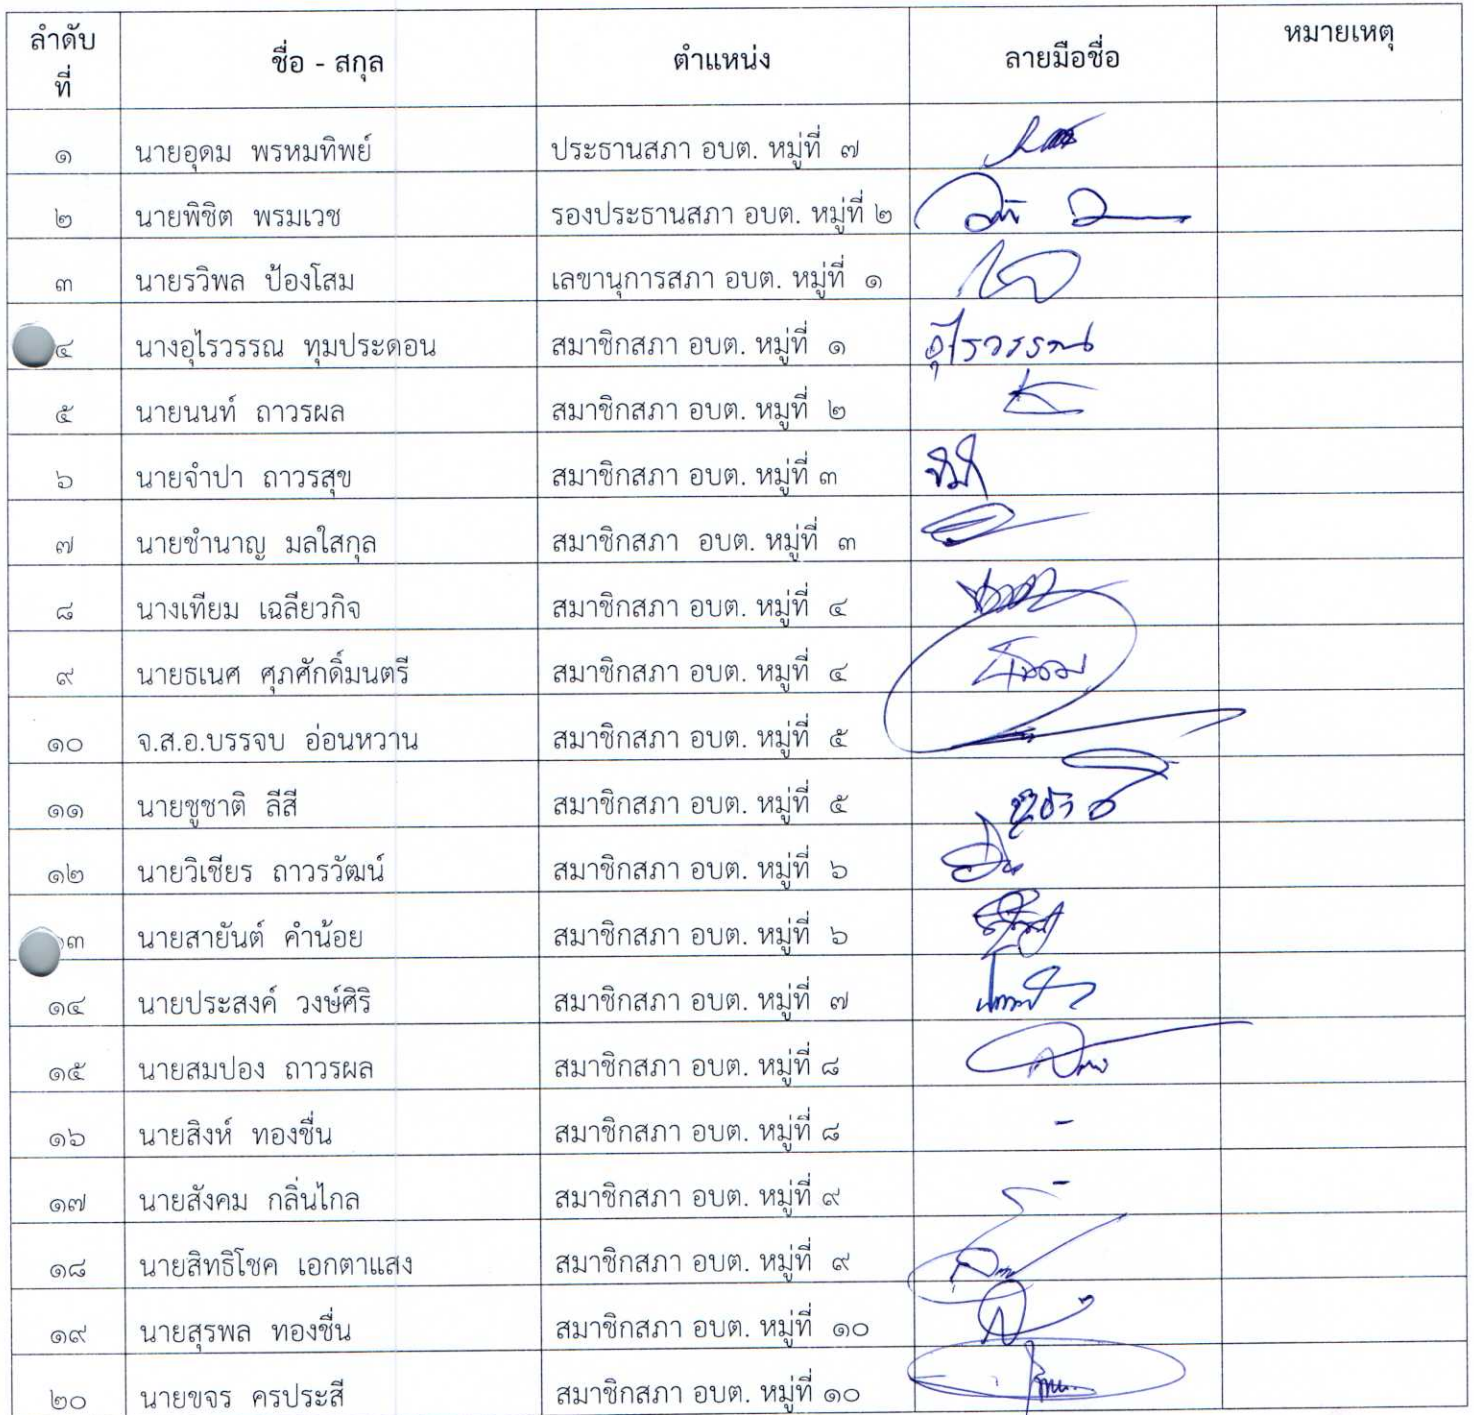 ลำดับ
ที่
ชื่อ - สกุล
ตำแหน่ง
ลายมือชื่อ
หมายเหตุ
๑ นายอุดม พรหมทิพย์ ประธานสภา อบต. หมู่ที่ ๗
๒ นายพิชิต พรมเวช รองประธานสภา อบต. หมู่ที่ ๒
๓ นายรวิพล ป้องโสม เลขานุการสภา อบต. หมู่ที่ ๑
๔ นางอุไรวรรณ ทุมประดอน สมาชิกสภา อบต. หมู่ที่ ๑ อุไรวรรณ
๕ นายนนท์ ถาวรผล สมาชิกสภา อบต. หมู่ที่ ๒
๖ นายจำปา ถาวรสุข สมาชิกสภา อบต. หมู่ที่ ๓
๗ นายชำนาญ มลใสกุล สมาชิกสภา อบต. หมู่ที่ ๓
๘ นางเทียม เฉลียวกิจ สมาชิกสภา อบต. หมู่ที่ ๔
๙ นายธเนศ ศุภศักดิ์มนตรี สมาชิกสภา อบต. หมู่ที่ ๔
๑๐ จ.ส.อ.บรรจบ อ่อนหวาน สมาชิกสภา อบต. หมู่ที่ ๕
๑๑ นายชูชาติ ลีสี สมาชิกสภา อบต. หมู่ที่ ๕
๑๒ นายวิเชียร ถาวรวัฒน์ สมาชิกสภา อบต. หมู่ที่ ๖
๓ นายสายันต์ คำน้อย สมาชิกสภา อบต. หมู่ที่ ๖
๑๔ นายประสงค์ วงษ์ศิริ สมาชิกสภา อบต. หมู่ที่ ๗
๑๕ นายสมปอง ถาวรผล สมาชิกสภา อบต. หมู่ที่ ๘
๑๖ นายสิงห์ ทองชื่น สมาชิกสภา อบต. หมู่ที่ ๘ -
๑๗ นายสังคม กลิ่นไกล สมาชิกสภา อบต. หมู่ที่ ๙ -
๑๘ นายสิทธิโชค เอกตาแสง สมาชิกสภา อบต. หมู่ที่ ๙
๑๙ นายสุรพล ทองชื่น สมาชิกสภา อบต. หมู่ที่ ๑๐
๒๐ นายขจร ครประสี สมาชิกสภา อบต. หมู่ที่ ๑๐